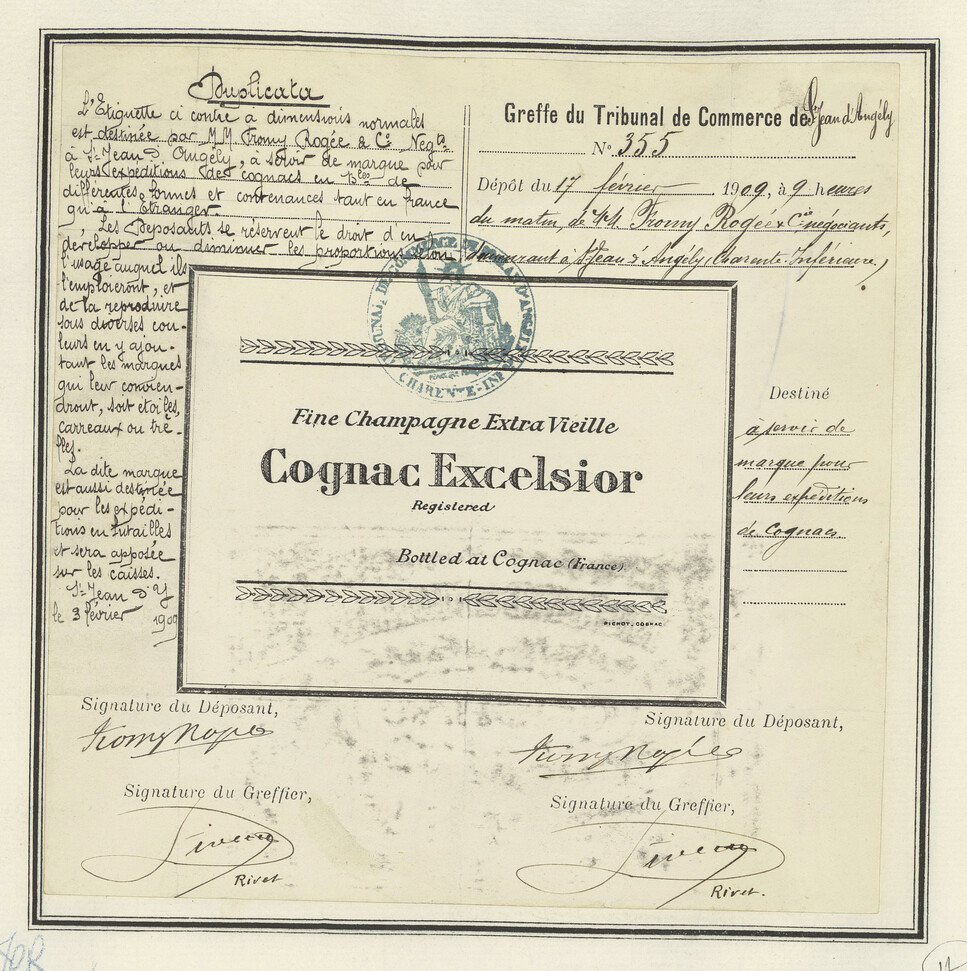 Duplicata
L'Etiquette ci contre à dimensions normales
est destinée par MM. Fromy Rogée & Cie Negts
à St Jean d'Angély, à servir de marque pour
leurs expéditions des cognacs en Blles de
différentes formes et contenances tant en France
qu'à l'Etranger.
Les Deposants se réservent le droit d'en
developper ou diminuer les proportions selon
l'usage auquel ils
l'emploieront, et
de la reproduire
sous diverses cou-
leurs en y ajou-
tant les marques
qui leur convien-
dront, soit etoiles,
carreaux ou trè-
fles.
La dite marque
est aussi destinée
pour les expédi-
tions en futailles
et sera apposée
sur les caisses.
St Jean d'Y
le 3 février 1909
Signature du Déposant,
Fromy Rogée
Signature du Greffier,
Rivet
Greffe du Tribunal de Commerce de St Jean d'Angély
No 355
Dépôt du 17 février 1909, à 9 heures
du matin, de MM. Fromy Rogée & Cie négociants,
demeurant à St Jean d'Angély (Charente-Inférieure.)
CHARENTE-INF
Fine Champagne Extra Vieille
Cognac Excelsior
Registered
Bottled at Cognac (France)
PICHOT, COGNAC
Destiné
à servir de
marque pour
leurs expéditions
de Cognacs
Signature du Déposant,
Fromy Rogée
Signature du Greffier,
Rivet.